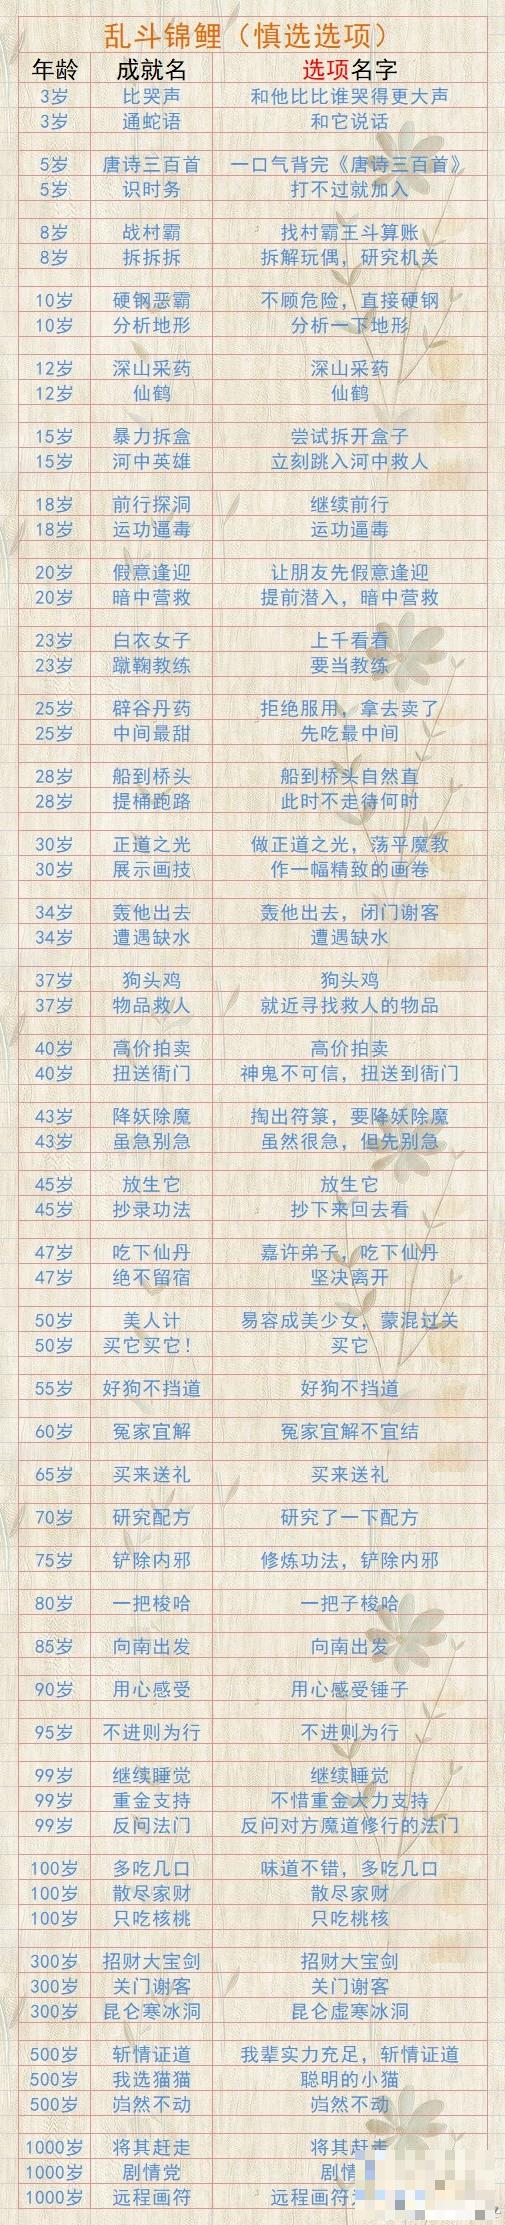 乱斗锦鲤（慎选选项）
年龄 成就名 选项名字
3岁 比哭声 和他比比谁哭得更大声
3岁 通蛇语 和它说话
5岁 唐诗三百首 一口气背完《唐诗三百首》
5岁 识时务 打不过就加入
8岁 战村霸 找村霸王斗算账
8岁 拆拆拆 拆解玩偶，研究机关
10岁 硬钢恶霸 不顾危险，直接硬钢
10岁 分析地形 分析一下地形
12岁 深山采药 深山采药
12岁 仙鹤 仙鹤
15岁 暴力拆盒 尝试拆开盒子
15岁 河中英雄 立刻跳入河中救人
18岁 前行探洞 继续前行
18岁 运功逼毒 运功逼毒
20岁 假意逢迎 让朋友先假意逢迎
20岁 暗中营救 提前潜入，暗中营救
23岁 白衣女子 上千看看
23岁 蹴鞠教练 要当教练
25岁 辟谷丹药 拒绝服用，拿去卖了
25岁 中间最甜 先吃最中间
28岁 船到桥头 船到桥头自然直
28岁 提桶跑路 此时不走待何时
30岁 正道之光 做正道之光，荡平魔教
30岁 展示画技 作一幅精致的画卷
34岁 轰他出去 轰他出去，闭门谢客
34岁 遭遇缺水 遭遇缺水
37岁 狗头鸡 狗头鸡
37岁 物品救人 就近寻找救人的物品
40岁 高价拍卖 高价拍卖
40岁 扭送衙门 神鬼不可信，扭送到衙门
43岁 降妖除魔 掏出符箓，要降妖除魔
43岁 虽急别急 虽然很急，但先别急
45岁 放生它 放生它
45岁 抄录功法 抄下来回去看
47岁 吃下仙丹 嘉许弟子，吃下仙丹
47岁 绝不留宿 坚决离开
50岁 美人计 易容成美少女，蒙混过关
50岁 买它买它！ 买它
55岁 好狗不挡道 好狗不挡道
60岁 冤家宜解 冤家宜解不宜结
65岁 买来送礼 买来送礼
70岁 研究配方 研究了一下配方
75岁 铲除内邪 修炼功法，铲除内邪
80岁 一把梭哈 一把子梭哈
85岁 向南出发 向南出发
90岁 用心感受 用心感受锤子
95岁 不进则为行 不进则为行
99岁 继续睡觉 继续睡觉
99岁 重金支持 不惜重金大力支持
99岁 反问法门 反问对方魔道修行的法门
100岁 多吃几口 味道不错，多吃几口
100岁 散尽家财 散尽家财
100岁 只吃核桃 只吃桃核
300岁 招财大宝剑 招财大宝剑
300岁 关门谢客 关门谢客
300岁 昆仑寒冰洞 昆仑虚寒冰洞
500岁 斩情证道 我辈实力充足，斩情证道
500岁 我选猫猫 聪明的小猫
500岁 岿然不动 岿然不动
1000岁 将其赶走 将其赶走
1000岁 剧情党 剧情
1000岁 远程画符 远程画符